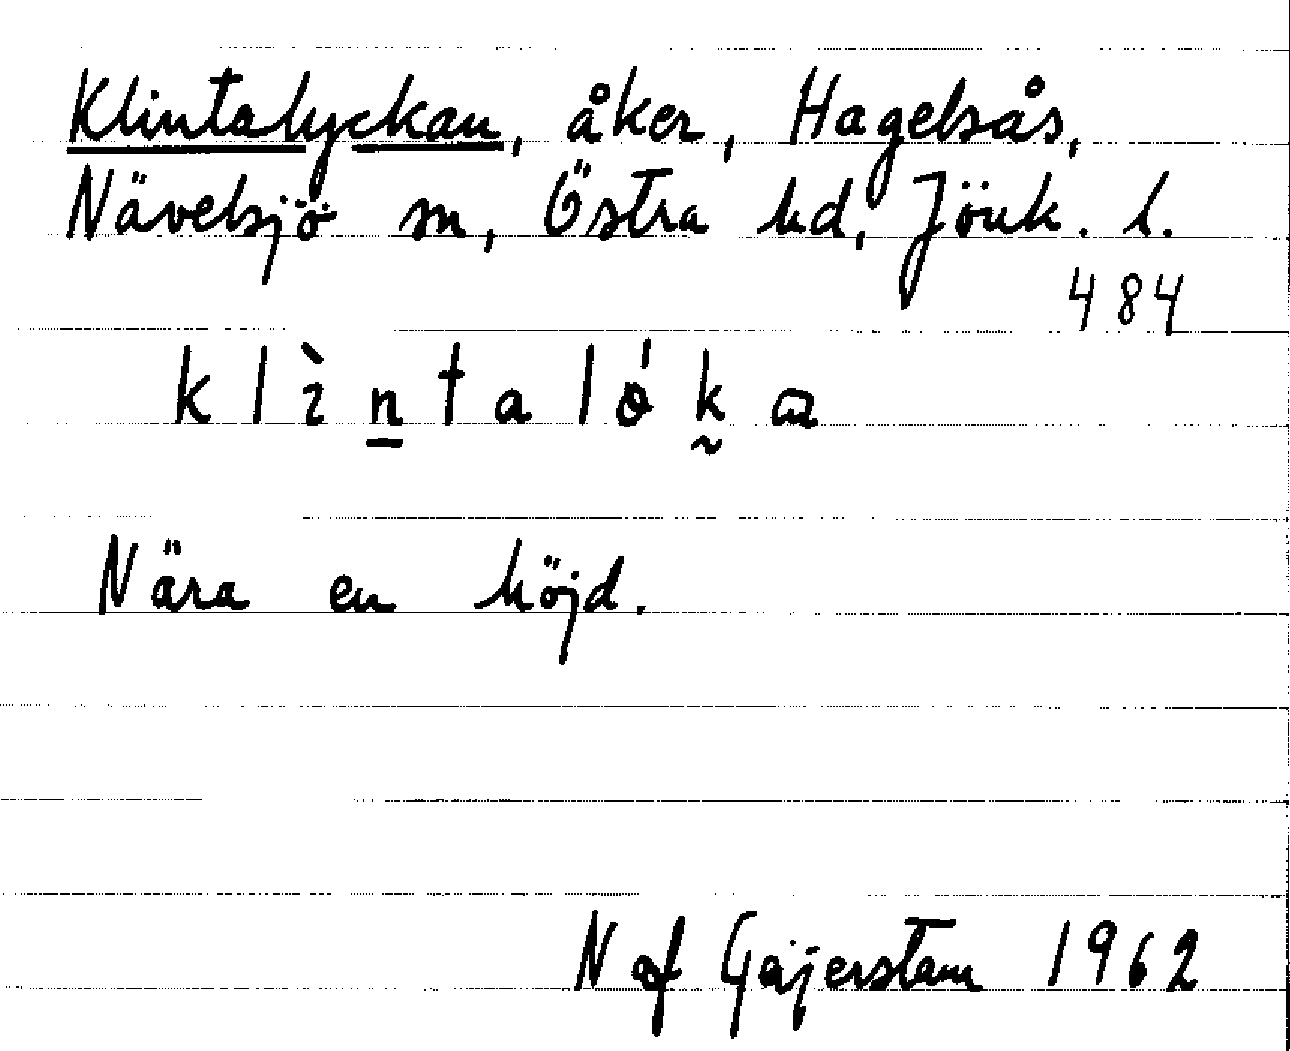 Klintalyckan, åker, Hagelsås,
Nävelsjö sn, Östra hd, Jönk. l.
484
Nära en höjd.
N af Geijerstam 1962